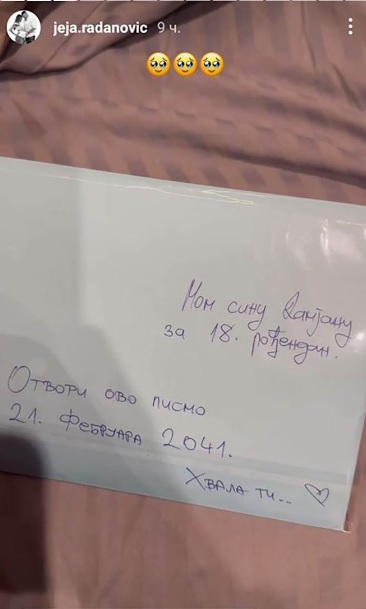 jeja.radanovic 9 ч.
Мом сину Дамјану
за 18. рођендан.
Отвори ово писмо
21. фебруара 2041.
Хвала ти...